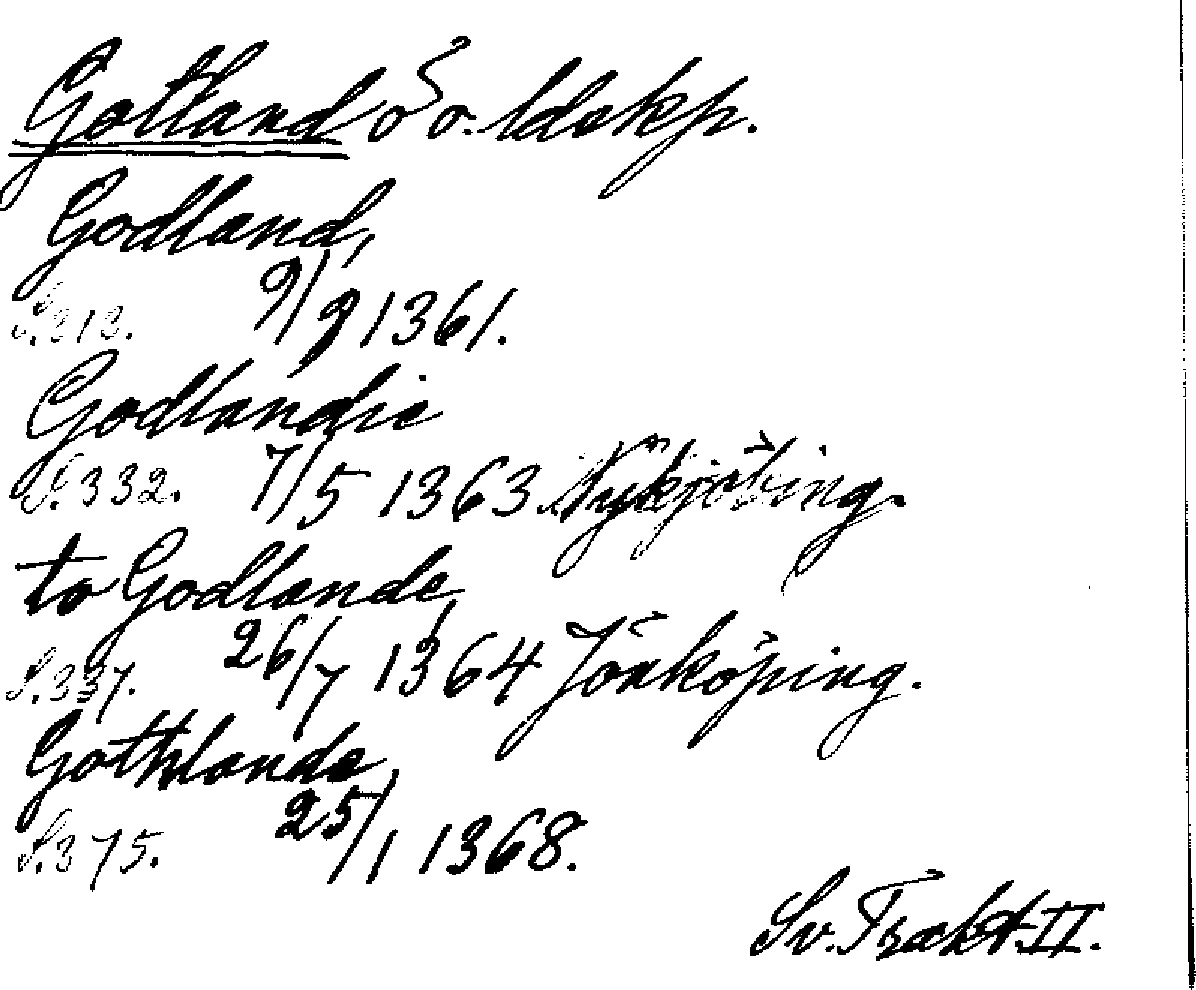 Gotland ö o. ldskp.
Godland,
S.313. 9/9 1361.
Godlandie
S.332. 7/5 1363 Nykjöbing.
to Godlande,
S.337. 26/7 1364 Jönköping.
Gothlande
S.375. 25/1 1368.
Sv. Trakt. II.